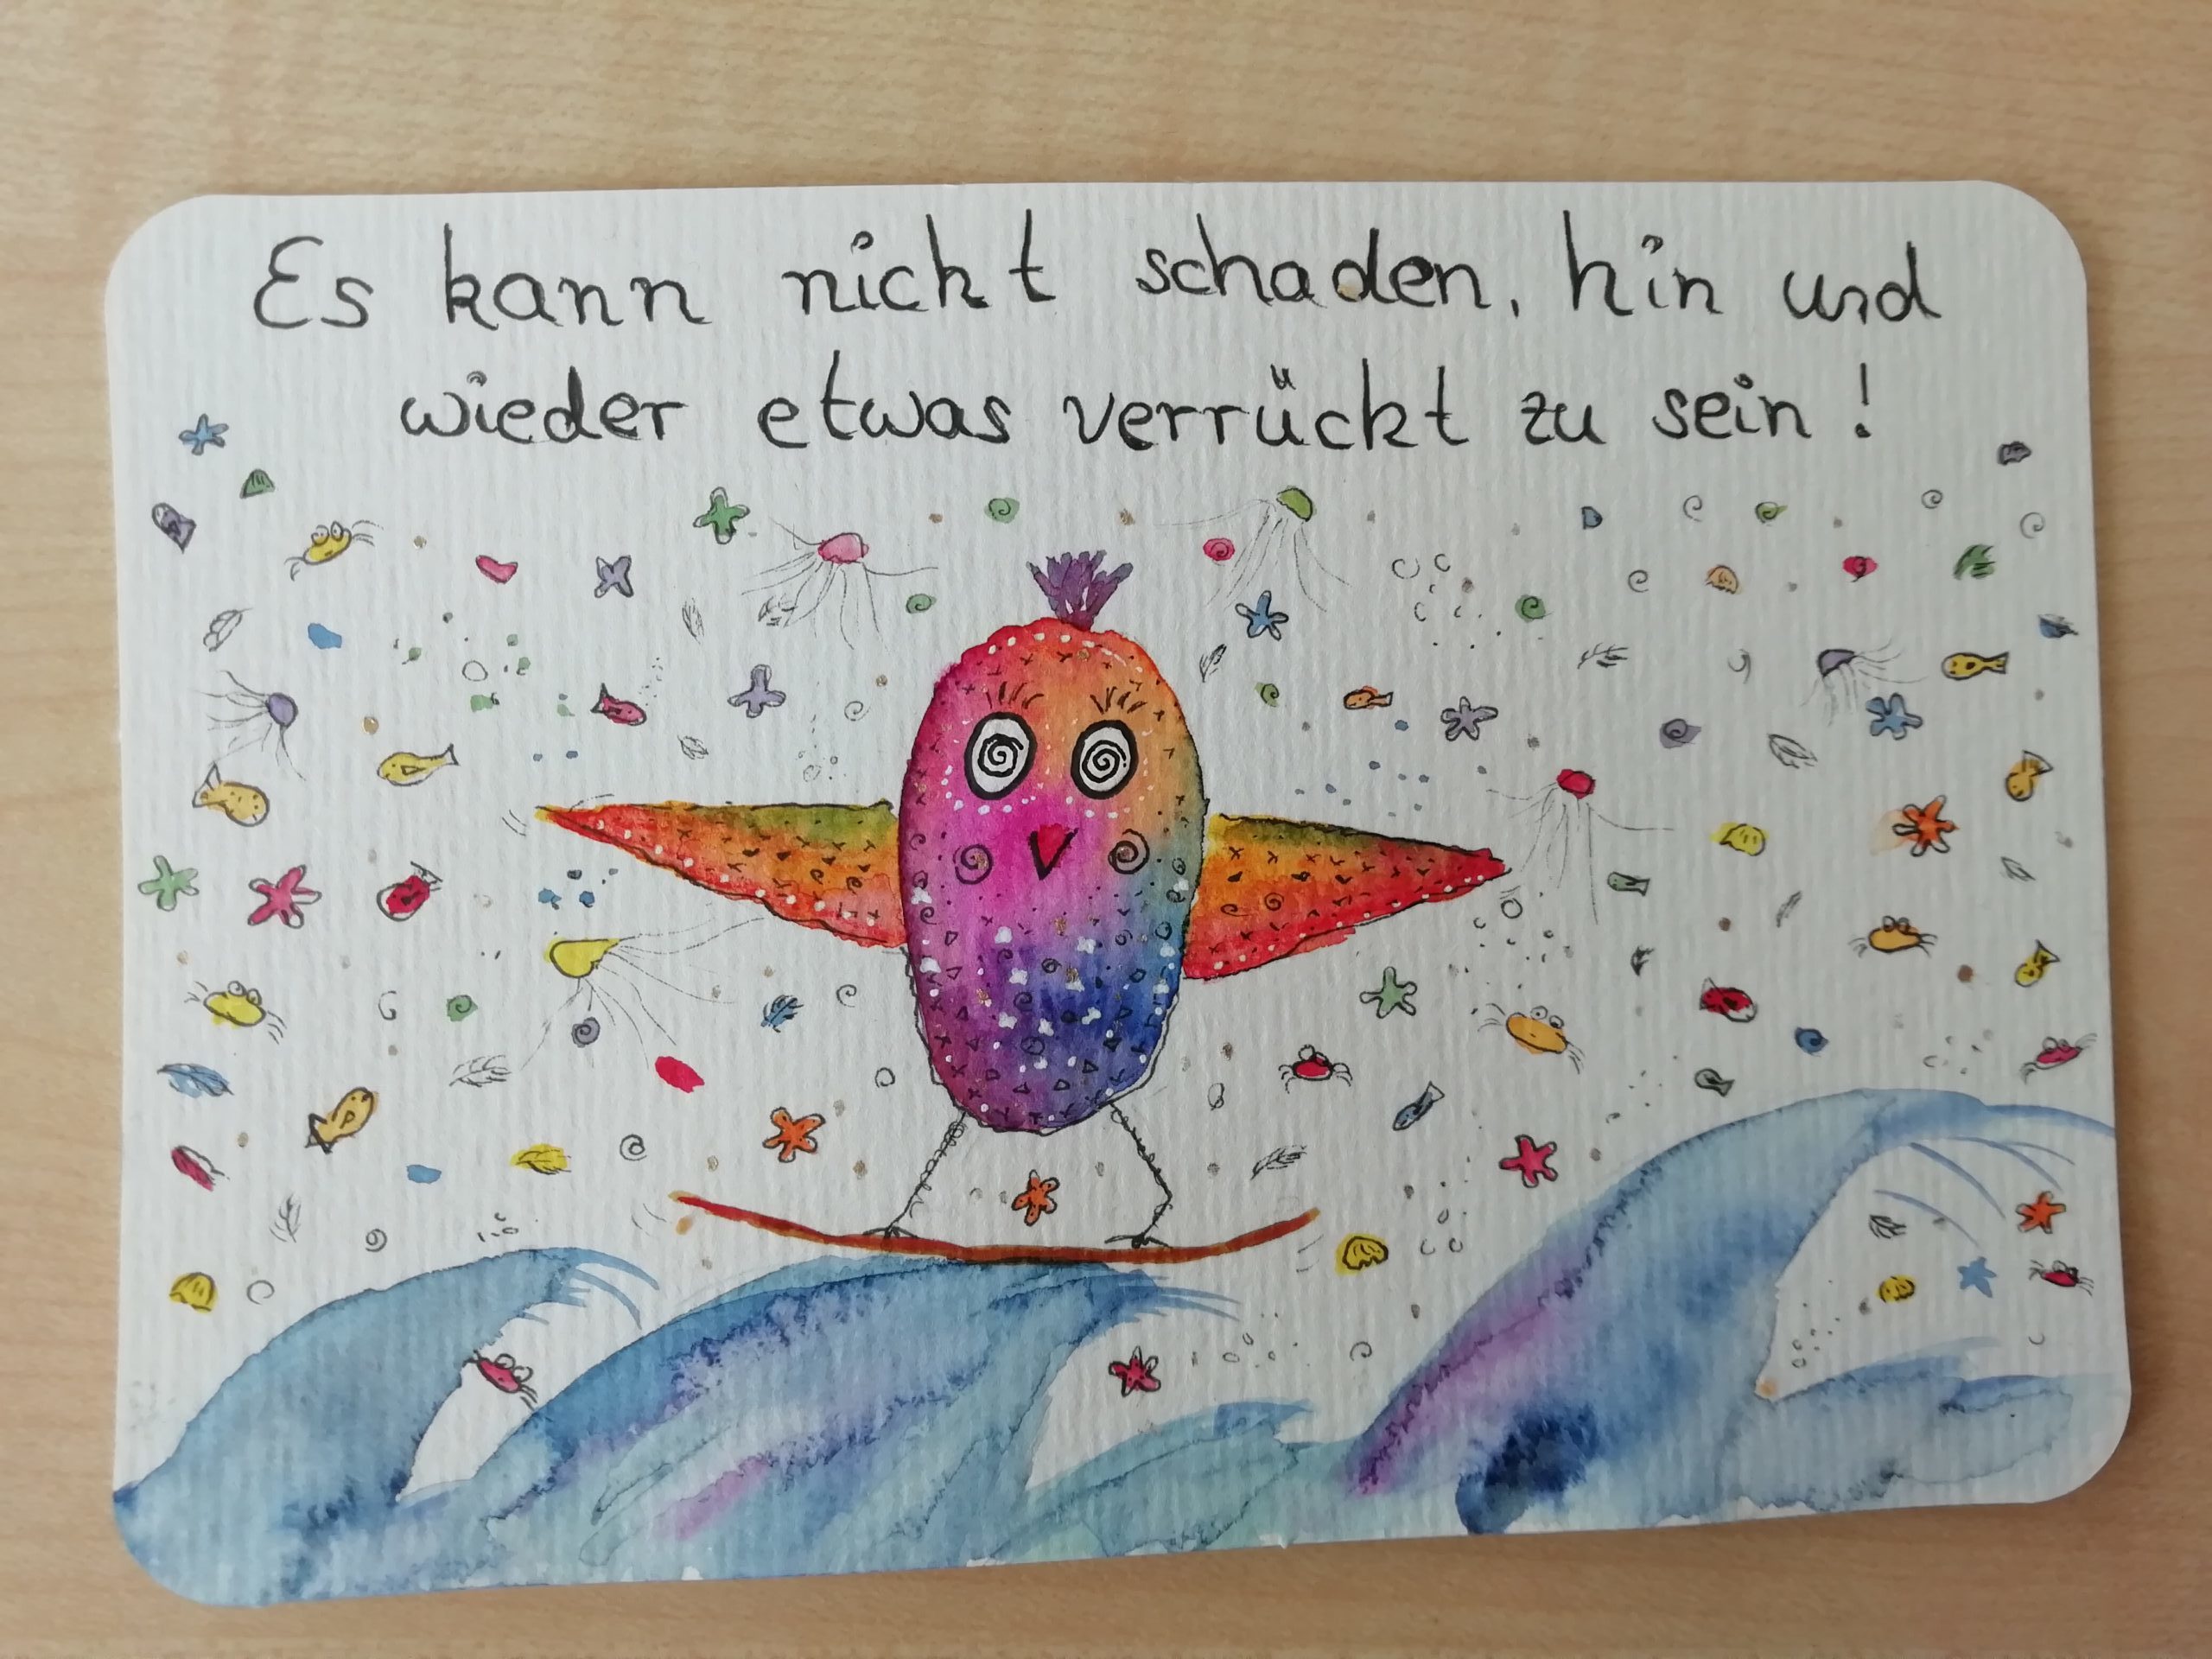 Es kann nicht schaden, hin und
wieder etwas verrückt zu sein!